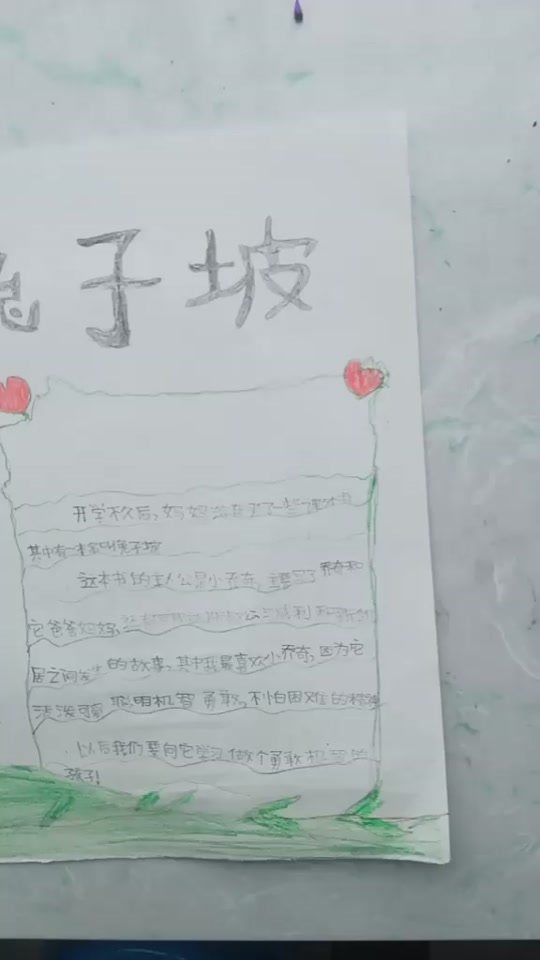 兔子坡
开学不久后,妈妈给我买了一些课外书
其中有一本名叫兔子坡
这本书的主人公是小乔奇,主要写了乔奇和
它爸爸妈妈
居之间发生的故事,其中我最喜欢小乔奇,因为它
活泼可爱,聪明机智勇敢,不怕困难的精神
以后我们要向它学习做个勇敢机智的
孩子!